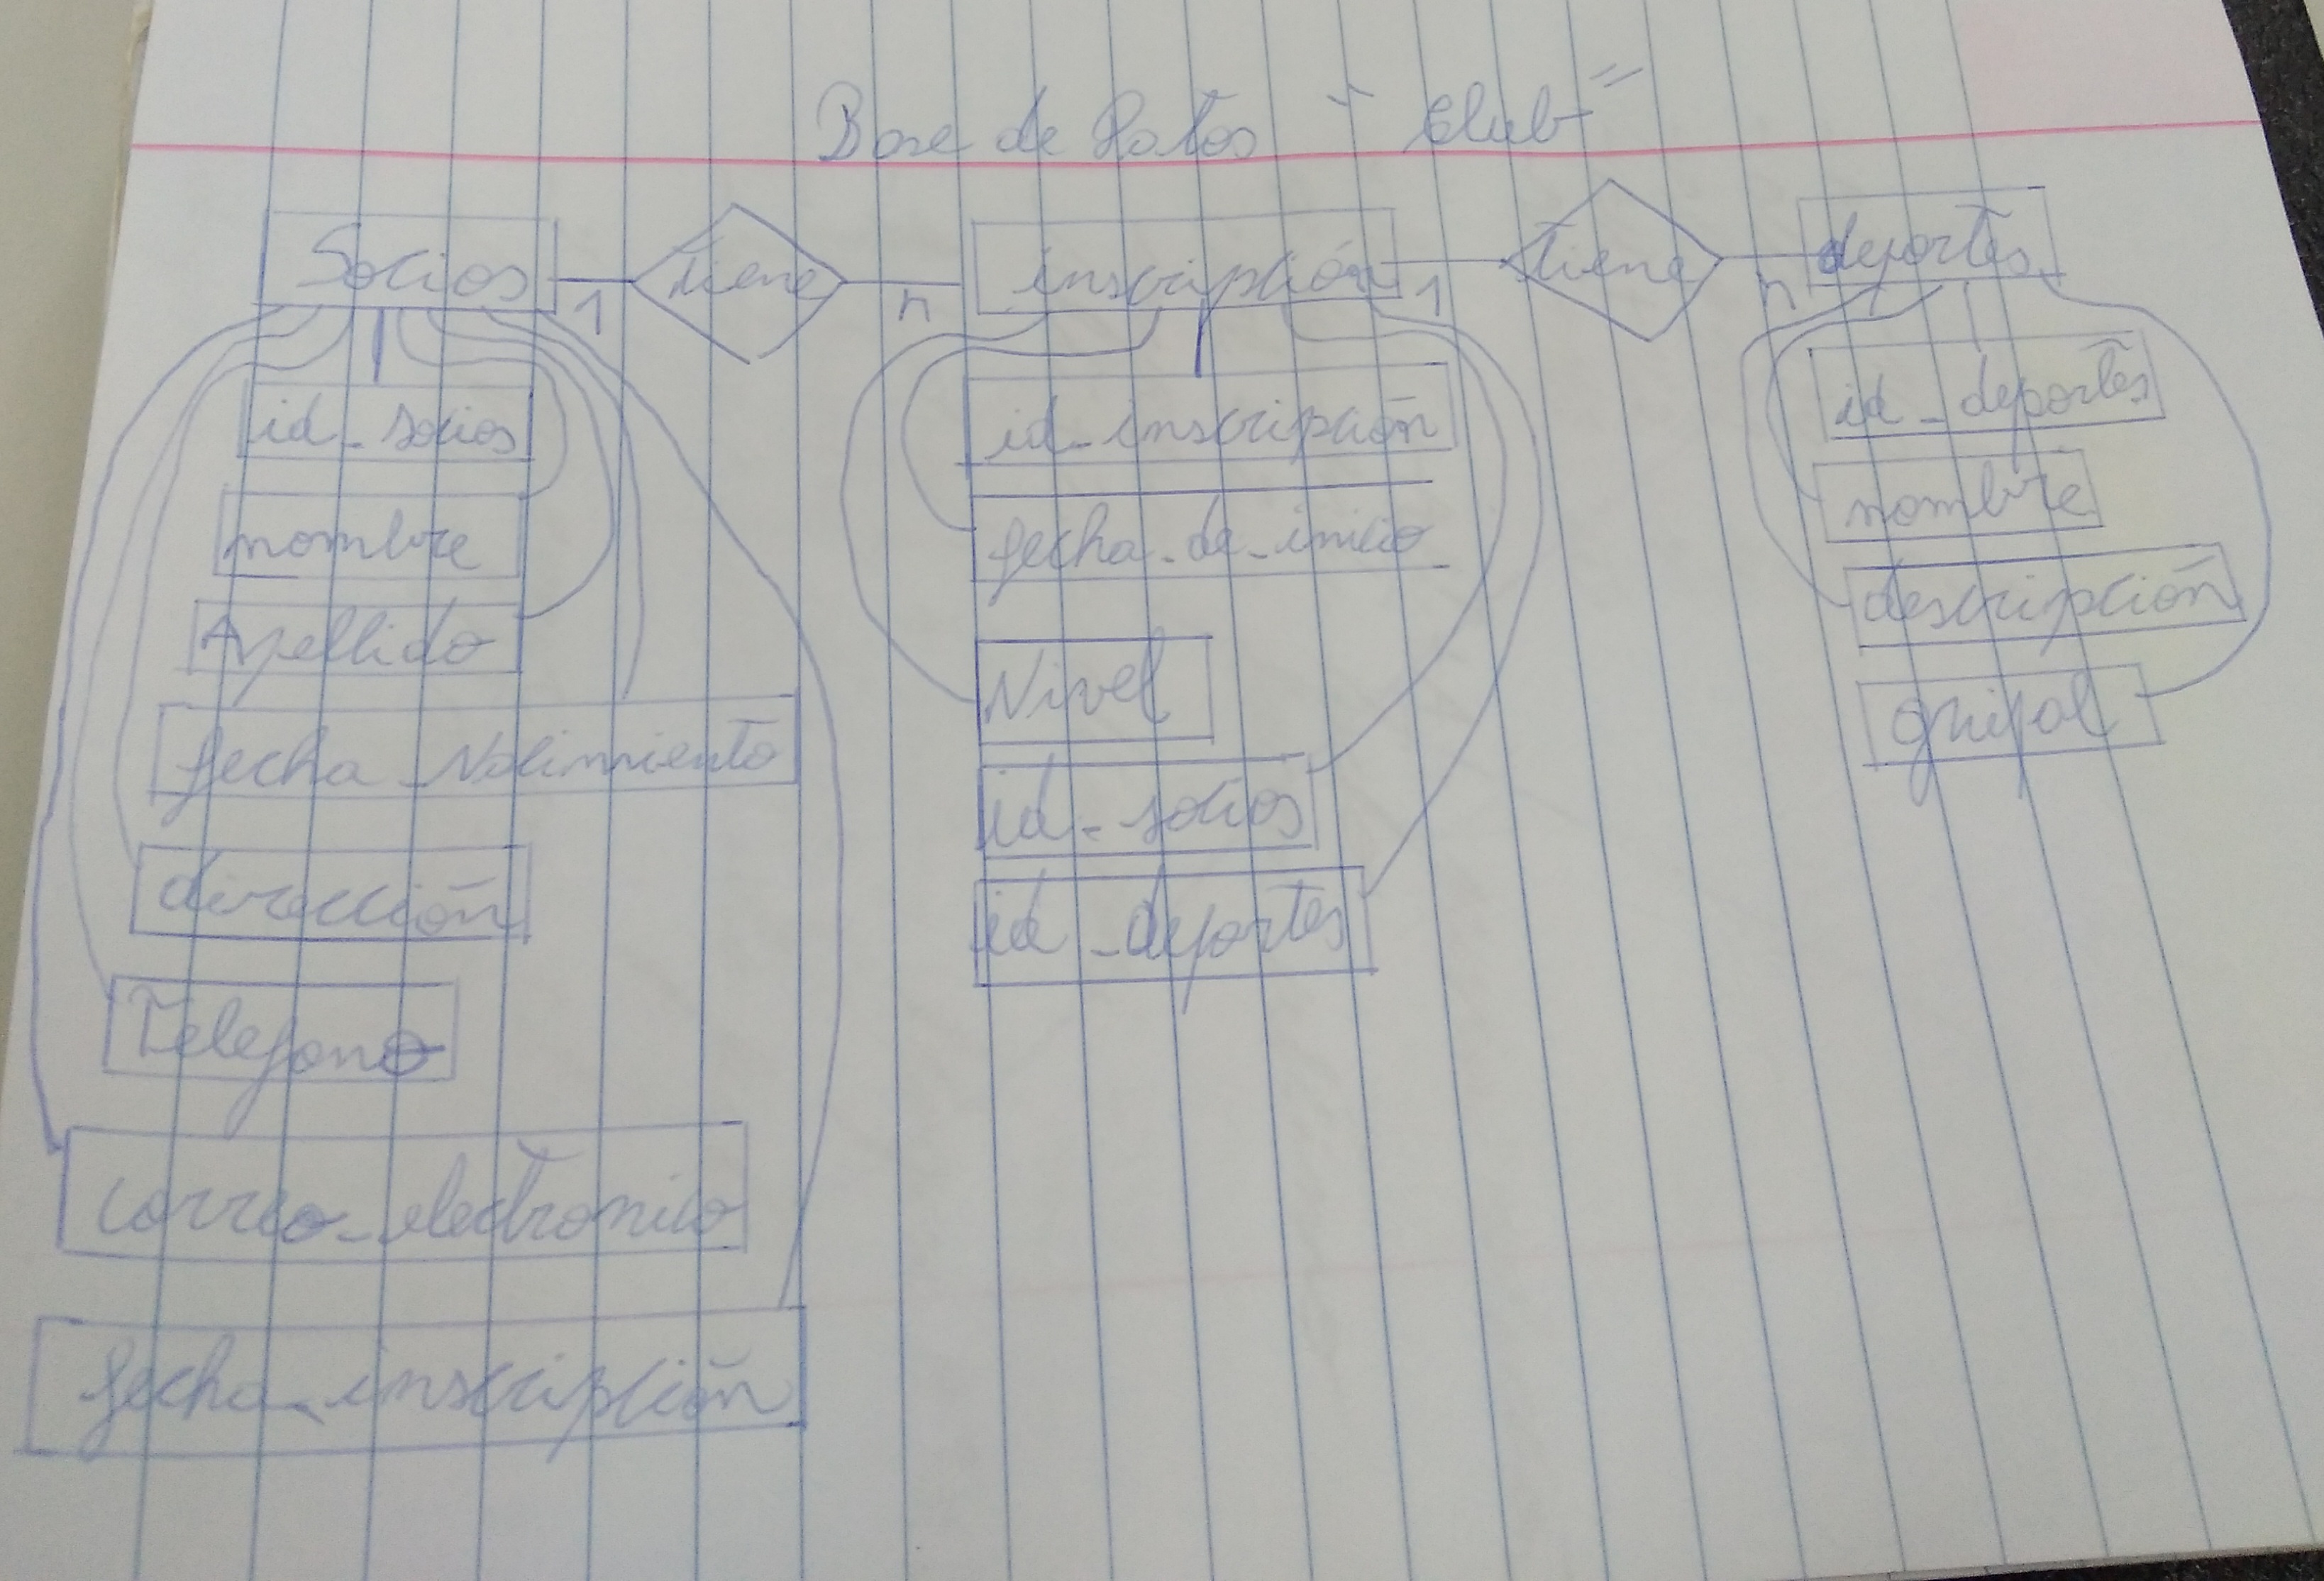 Base de Datos "Club"
Socios 1 tiene n inscripción 1 tiene n deportes
id_socios
nombre
Apellido
fecha_Nacimiento
dirección
Telefono
correo_electronico
fecha_inscripción
id_inscripción
fecha_de_inicio
Nivel
id_socios
id_deportes
id_deportes
nombre
descripción